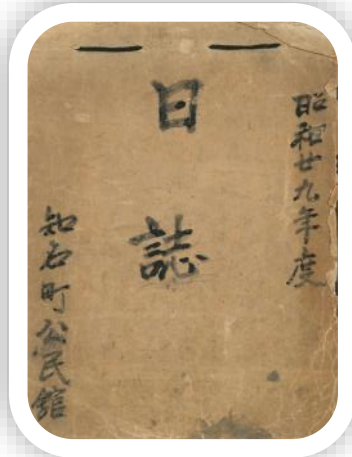 昭和廿九年度
日誌
知名町公民館